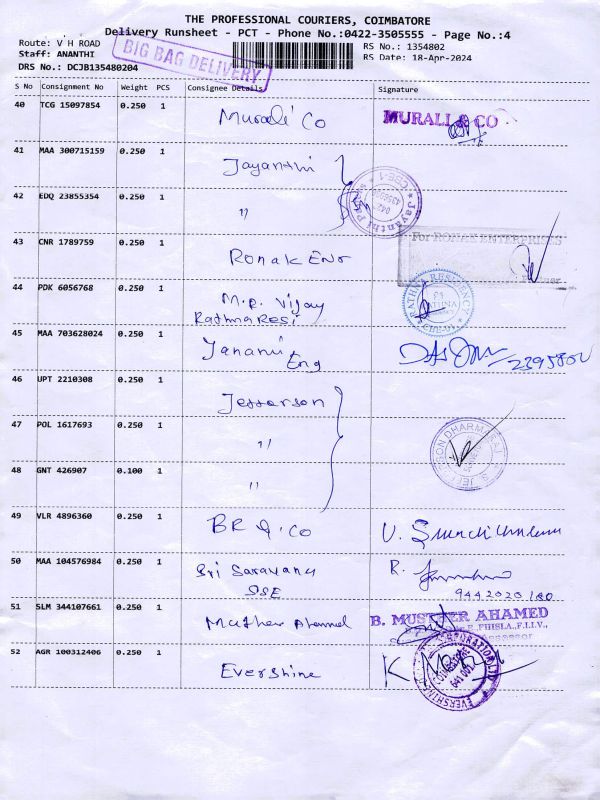 THE PROFESSIONAL COURIERS, COIMBATORE
Delivery Runsheet - PCT - Phone No.:0422-3505555 - Page No.:4
Route: V H ROAD
RS No.: 1354802
Staff: ANANTHI
RS Date: 18-Apr-2024
DRS No.: DCJB135480204
BIG BAG DELIVERY
S No Consignment No Weight PCS Consignee Details Signature
40 TCG 15097854 0.250 1 Murali Co MURALI & CO
41 MAA 300715159 0.250 1 Jayanthi
42 EDQ 23855354 0.250 1 〃
43 CNR 1789759 0.250 1 Ronak Enr For RONAK ENTERPRISES
44 PDK 6056768 0.250 1 M.P. Vijay
Rathna Resi
RATHNA RESIDENCY
CBE-01
45 MAA 703628024 0.250 1 Eng
46 UPT 2210308 0.250 1 Jefferson
47 POL 1617693 0.250 1 〃
48 GNT 426907 0.100 1 〃
49 VLR 4896360 0.250 1 BR & Co
50 MAA 104576984 0.250 1 Sri Saravana R.
51 SLM 344107661 0.250 1 B. MUSTHER AHAMED
52 AGR 100312406 0.250 1 Evershine